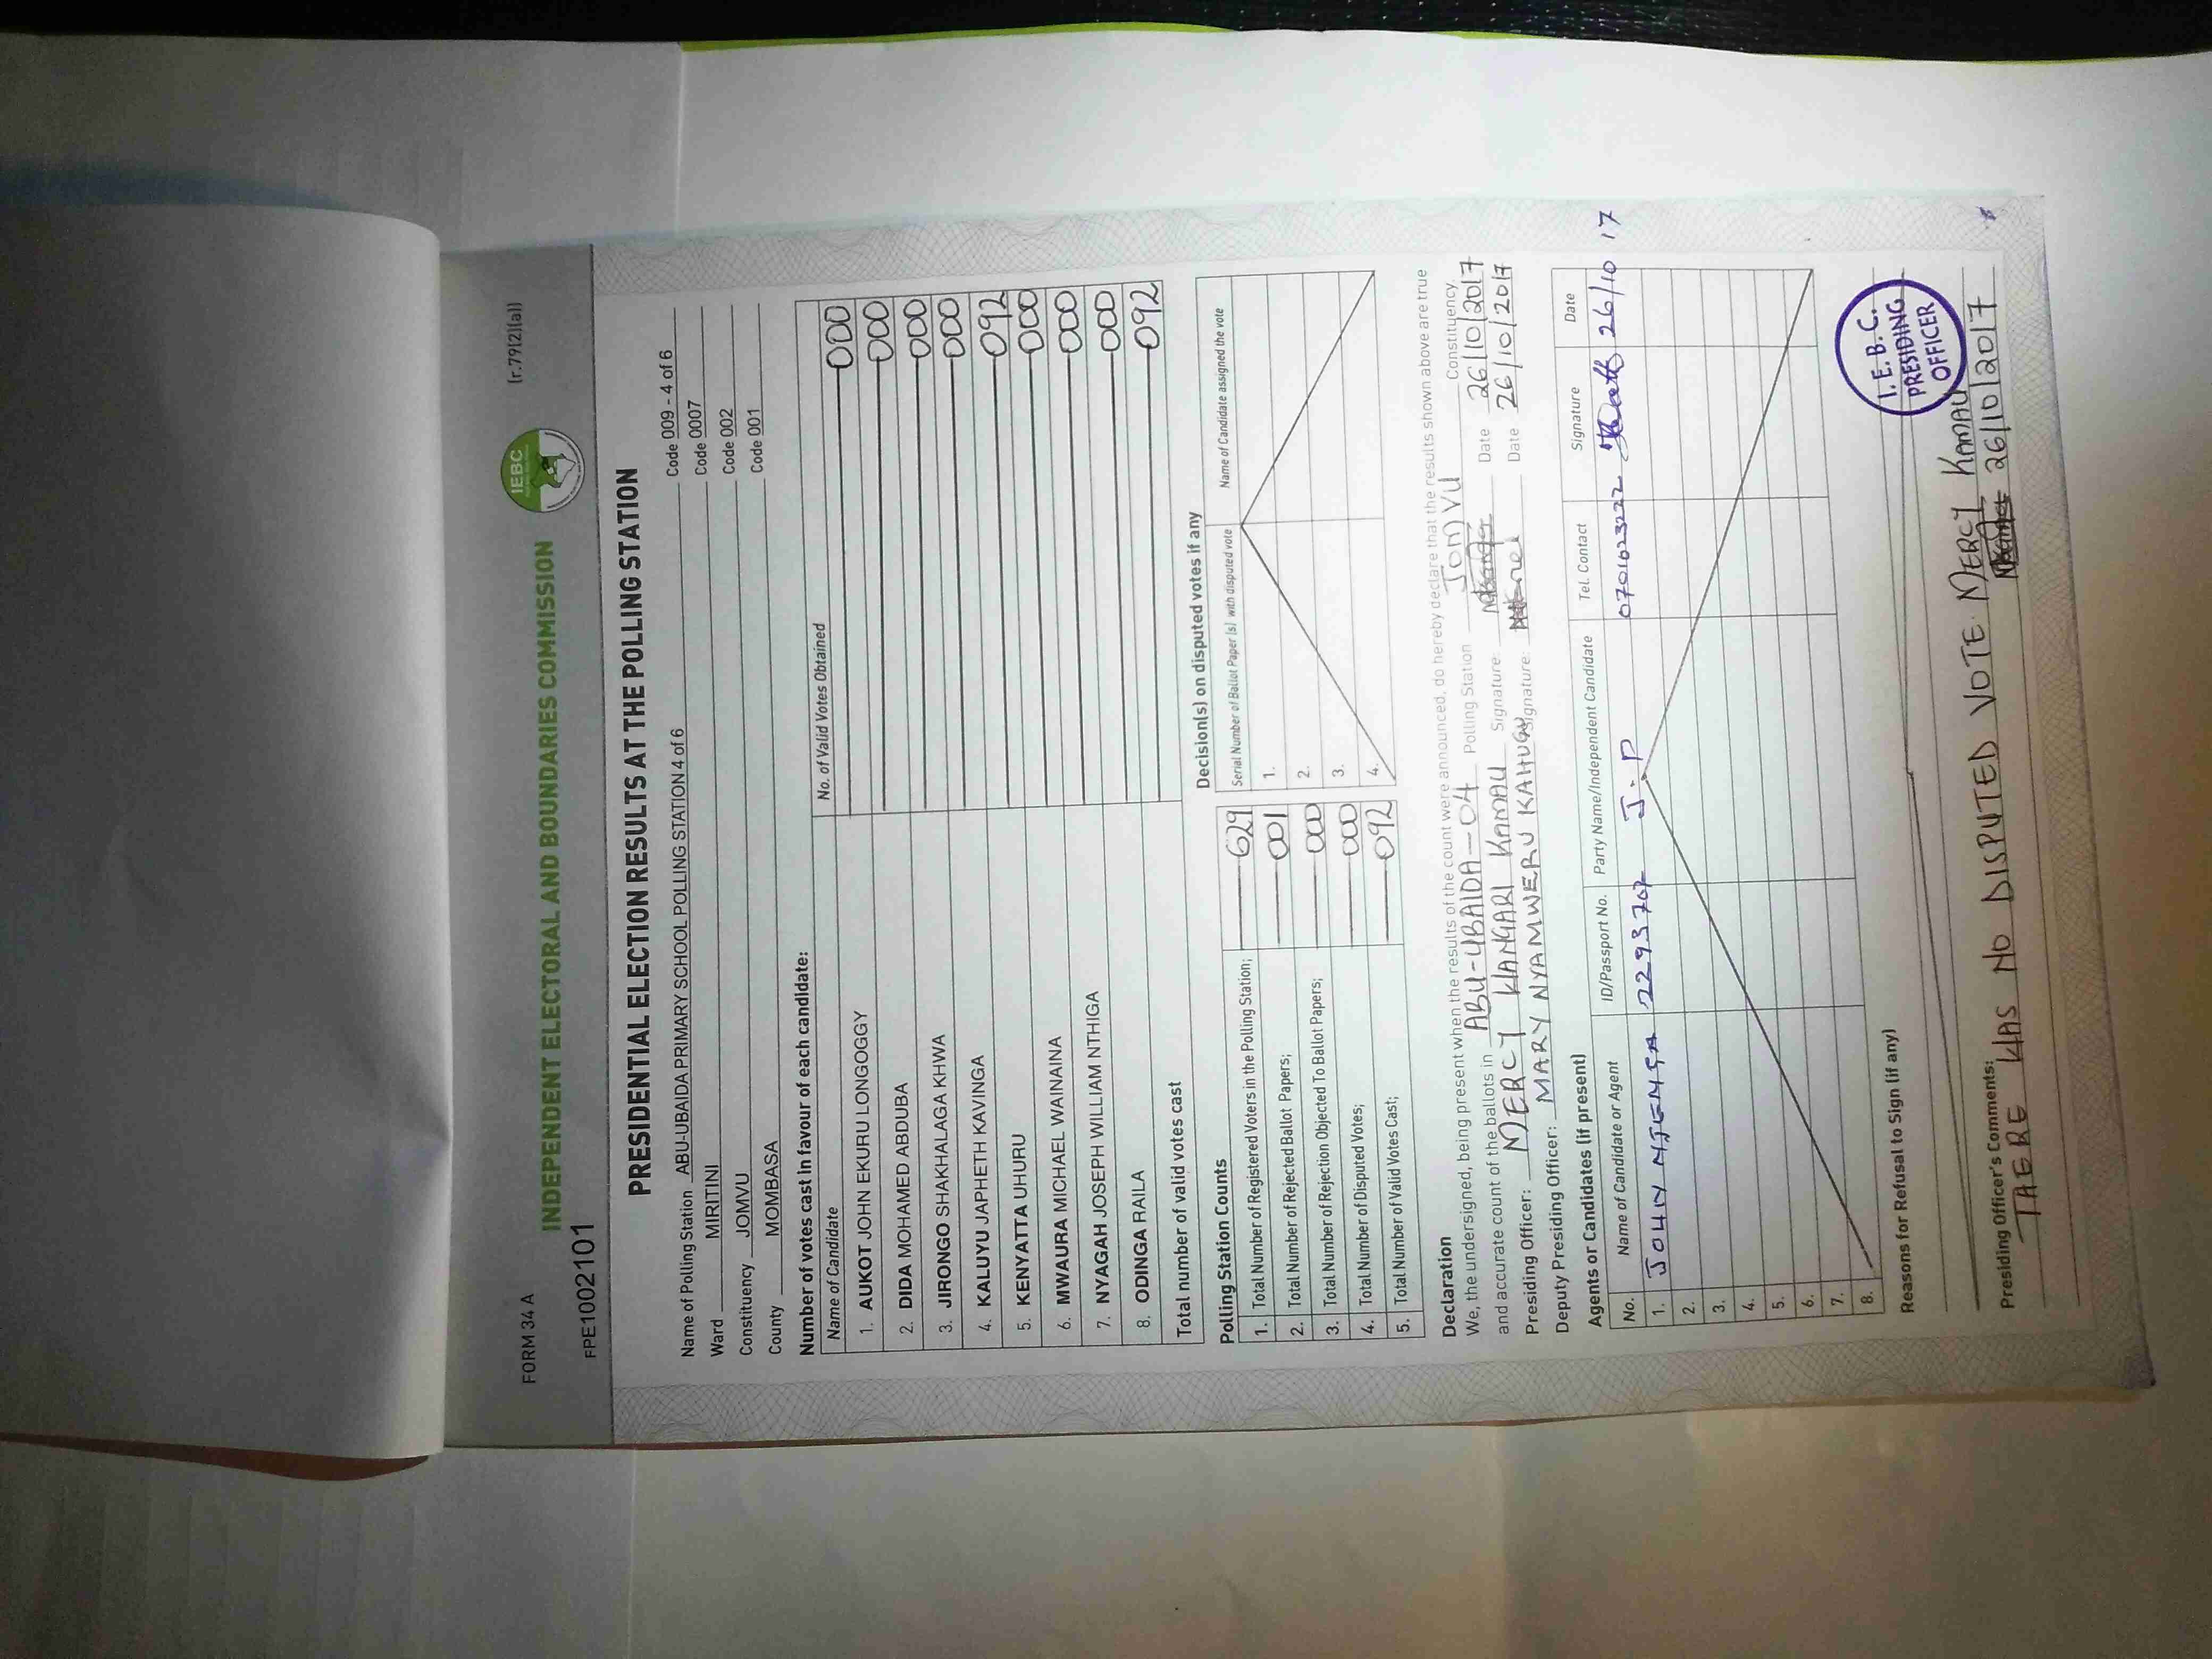 FORM 34 A
(r.79(2)(a))
IEBC
INDEPENDENT ELECTORAL AND BOUNDARIES COMMISSION
FPE1002101
PRESIDENTIAL ELECTION RESULTS AT THE POLLING STATION
Name of Polling Station ABU-UBAIDA PRIMARY SCHOOL POLLING STATION 4 of 6 Code 009 - 4 of 6
Ward MIRITINI Code 0007
Constituency JOMVU Code 002
County MOMBASA Code 001
Number of votes cast in favour of each candidate:
Name of Candidate No. of Valid Votes Obtained
1. AUKOT JOHN EKURU LONGOGGY 000
2. DIDA MOHAMED ABDUBA 000
3. JIRONGO SHAKHALAGA KHWA 000
4. KALUYU JAPHETH KAVINGA 000
5. KENYATTA UHURU 092
6. MWAURA MICHAEL WAINAINA 000
7. NYAGAH JOSEPH WILLIAM NTHIGA 000
8. ODINGA RAILA 000
Total number of valid votes cast 092
Polling Station Counts
1. Total Number of Registered Voters in the Polling Station; 629
2. Total Number of Rejected Ballot Papers; 001
3. Total Number of Rejection Objected To Ballot Papers; 000
4. Total Number of Disputed Votes; 000
5. Total Number of Valid Votes Cast; 092
Decision(s) on disputed votes if any
Serial Number of Ballot Paper(s) with disputed vote Name of Candidate assigned the vote
1.
2.
3.
4.
Declaration
We, the undersigned, being present when the results of the count were announced, do hereby declare that the results shown above are true
and accurate count of the ballots in ABU-UBAIDA-04 Polling Station JOMVU Constituency.
Presiding Officer: MERCY WANGARI KAMAU Signature: Date 26/10/2017
Deputy Presiding Officer: MARY NYAMWERU KAHUGU Signature: Date 26/10/2017
Agents or Candidates (if present)
No. Name of Candidate or Agent ID/Passport No. Party Name/Independent Candidate Tel. Contact Signature Date
1. JOHN NJENGA 22937 J.P 26/10 17
2.
3.
4.
5.
6.
7.
8.
Reasons for Refusal to Sign (if any)
Presiding Officer's Comments:
THERE WAS NO DISPUTED VOTE. MERCY KAMAU
26/10/2017
I.E.B.C.
PRESIDING
OFFICER